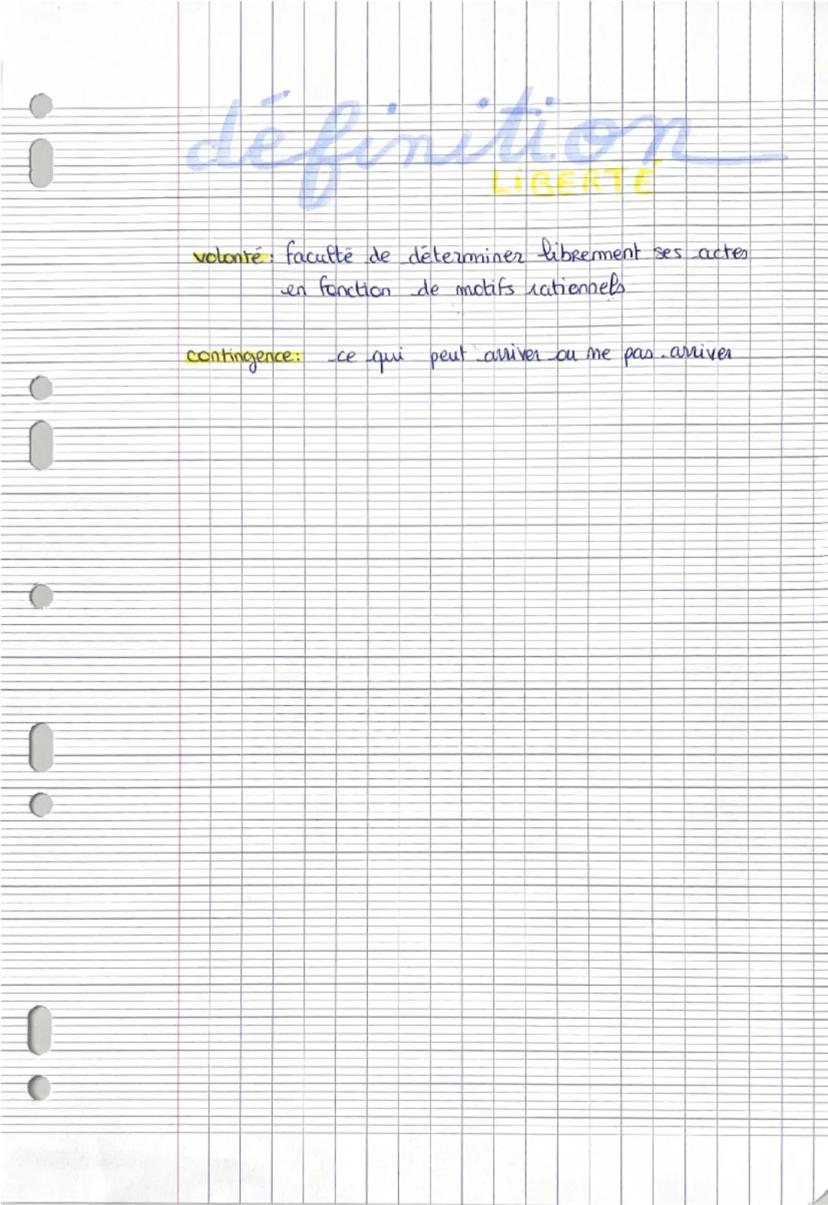 définition
LIBERTÉ
volonté : faculté de déterminer librement ses actes
en fonction de motifs rationnels
contingence : ce qui peut arriver ou ne pas arriver